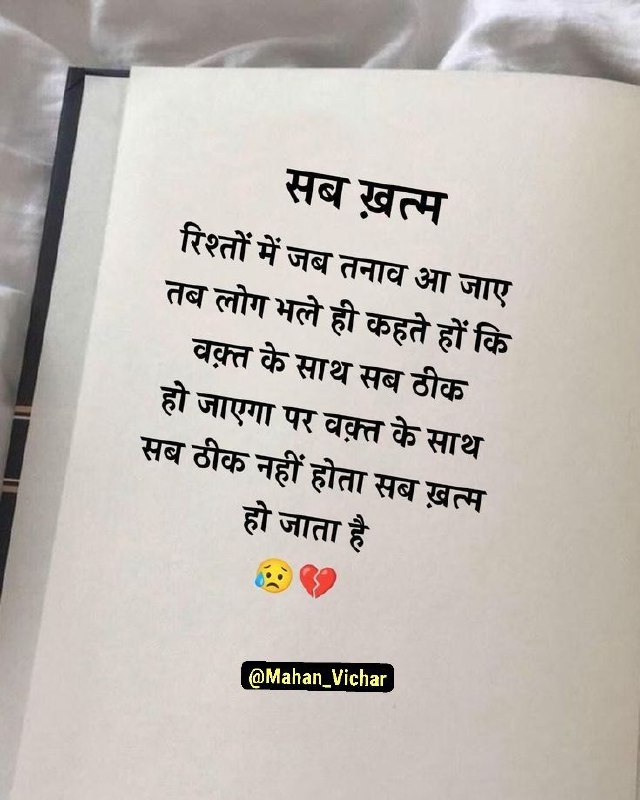 सब ख़त्म
रिश्तों में जब तनाव आ जाए
तब लोग भले ही कहते हों कि
वक़्त के साथ सब ठीक
हो जाएगा पर वक़्त के साथ
सब ठीक नहीं होता सब ख़त्म
हो जाता है
😥💔
@Mahan_Vichar